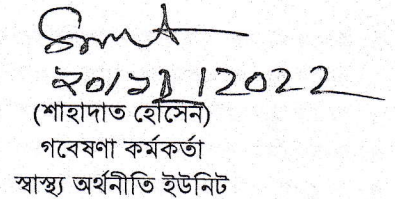 ২০/১১/2022
(শাহাদাত হোসেন)
গবেষণা কর্মকর্তা
স্বাস্থ্য অর্থনীতি ইউনিট